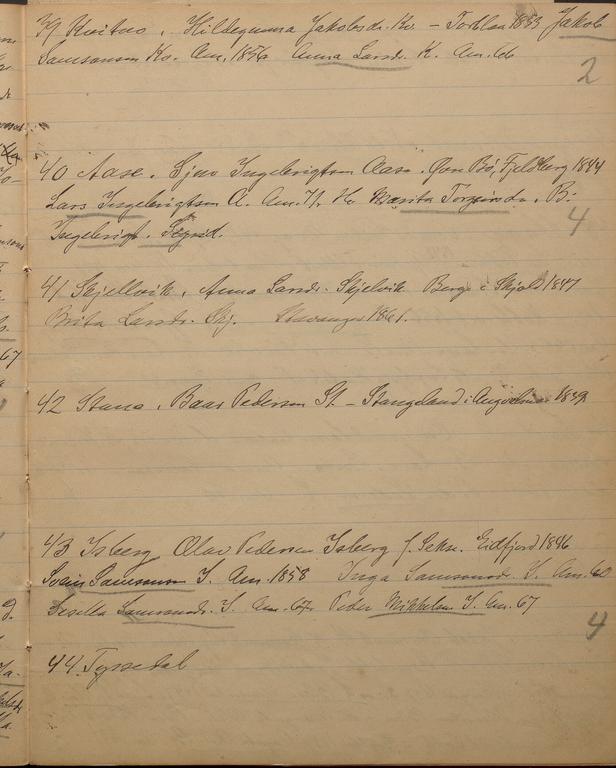 39 Kvitno, Hildegunna Jakobsdr. Kv. – 1853 Jakob
Samsonsen Kv. Am. 1856 Anna Larsdr. K. Am. 66
2
40 Aase. Sjur Ingebrigtsen Aase. Bø, Fjeldberg 1844
Lars Ingebrigtsen A. Am. 71. Marita Torgeirsdr. B.
4
Ingebrigt. Sigrid.
41 Skjellvik, Anna Larsdr. Skjelvik Berge i Skjold 1847
Brita Larsdr. Skj. Stavanger 1861.
42 Stana, Baar Pedersen St. – Stangeland i
43 Isberg Olav Pedersen Isberg f. Sekse. Eidfjord 1846
Svein Samsonsen I. Am. 1858 Inga Samsonsdr. I. Am. 60
Samsonsdr. I. Am. 67. Peder Mikkelsen I. Am. 67
4
44. Tyssedal